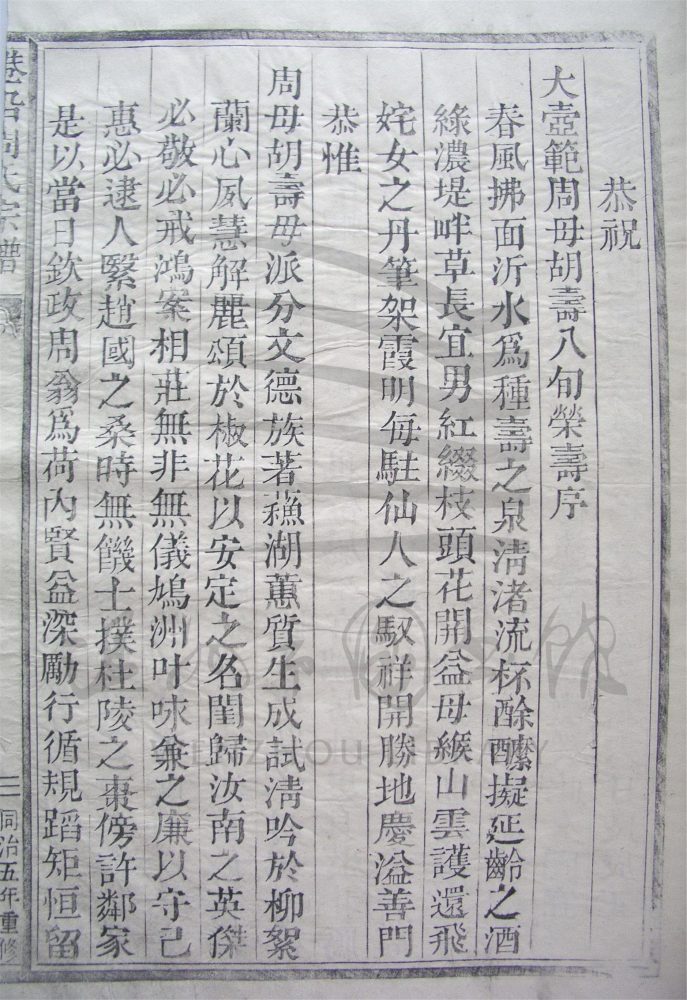 恭祝
大壼範周母胡壽八旬榮壽序
春風拂面沂水爲種壽之泉淸渚流杯酴醿擬延齡之酒
綠濃堤畔草長宜男紅綴枝頭花開益母緱山雲護還飛
姹女之丹筆架霞明每駐仙人之馭祥開勝地慶溢善門
恭惟
周母胡壽母派分文德族著蘓湖蕙質生成試淸吟於柳絮
蘭心夙慧解麗頌於椒花以安定之名閨歸汝南之英傑
必敬必戒鴻案相莊無非無儀鳩洲叶咏兼之廉以守己
惠必逮人翳趙國之桑時無饑士撲杜陵之棗傍許鄰家
是以當日欽政周翁爲荷內賢益深勵行循規蹈矩恒留
周氏宗譜
二
同治五年重修